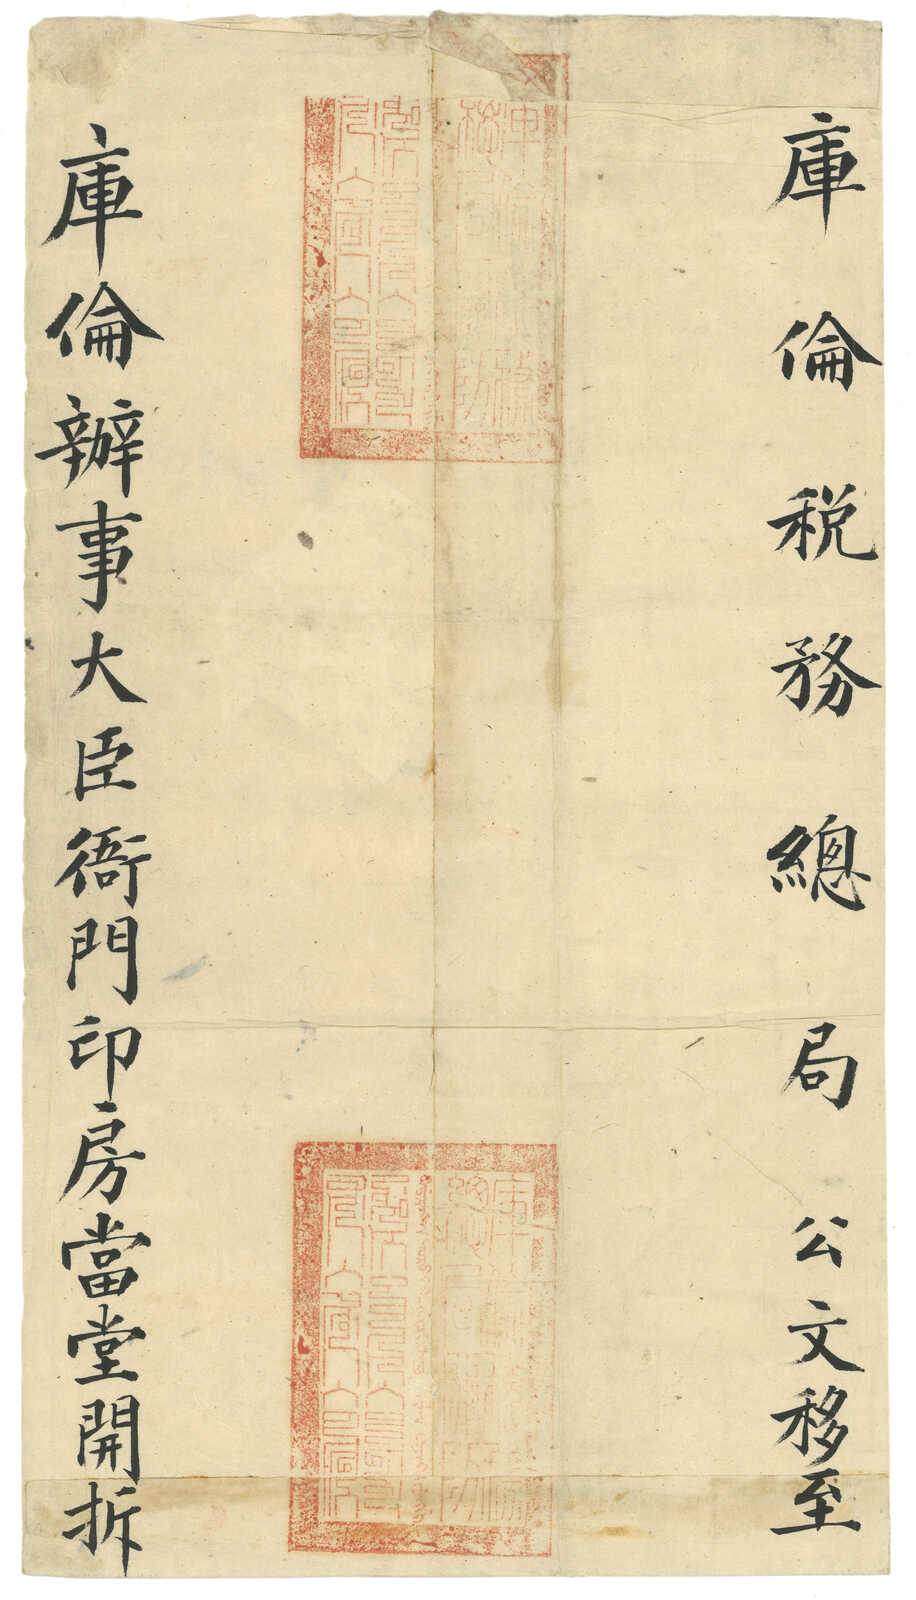 庫倫税務總局公文移至
庫倫辦事大臣衙門印房當堂開拆